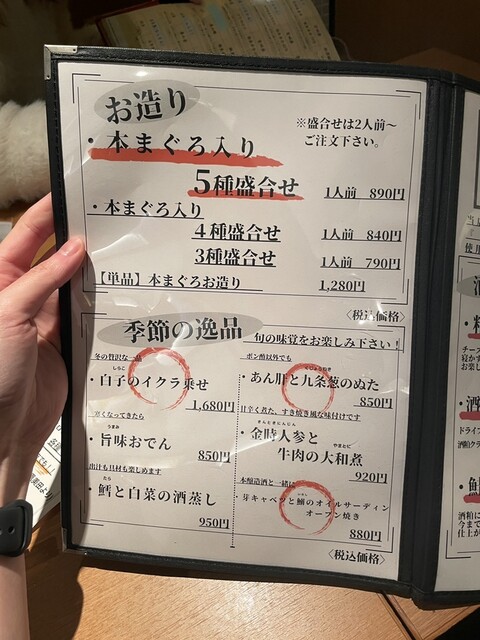 お造り
※盛合せは2人前〜
ご注文下さい。
・本まぐろ入り
5種盛合せ 1人前 890円
・本まぐろ入り
4種盛合せ 1人前 840円
3種盛合せ 1人前 790円
【単品】本まぐろお造り 1,280円
〈税込価格〉
季節の逸品
旬の味覚をお楽しみ下さい！
冬の贅沢な一品
しらこ
・白子のイクラ乗せ
1,680円
寒くなってきたら
うまみ
・旨味おでん
850円
出汁も具材も楽しめます
たら
・鱈と白菜の酒蒸し
950円
ポン酢以外でも
・あん肝と九条葱のぬた
850円
甘辛く煮た、すき焼き風な味付けです
きんときにんじん
・金時人参と
やまとに
牛肉の大和煮
920円
本醸造酒と一緒に
・芽キャベツと鰯のオイルサーディン
オーブン焼き
880円
〈税込価格〉